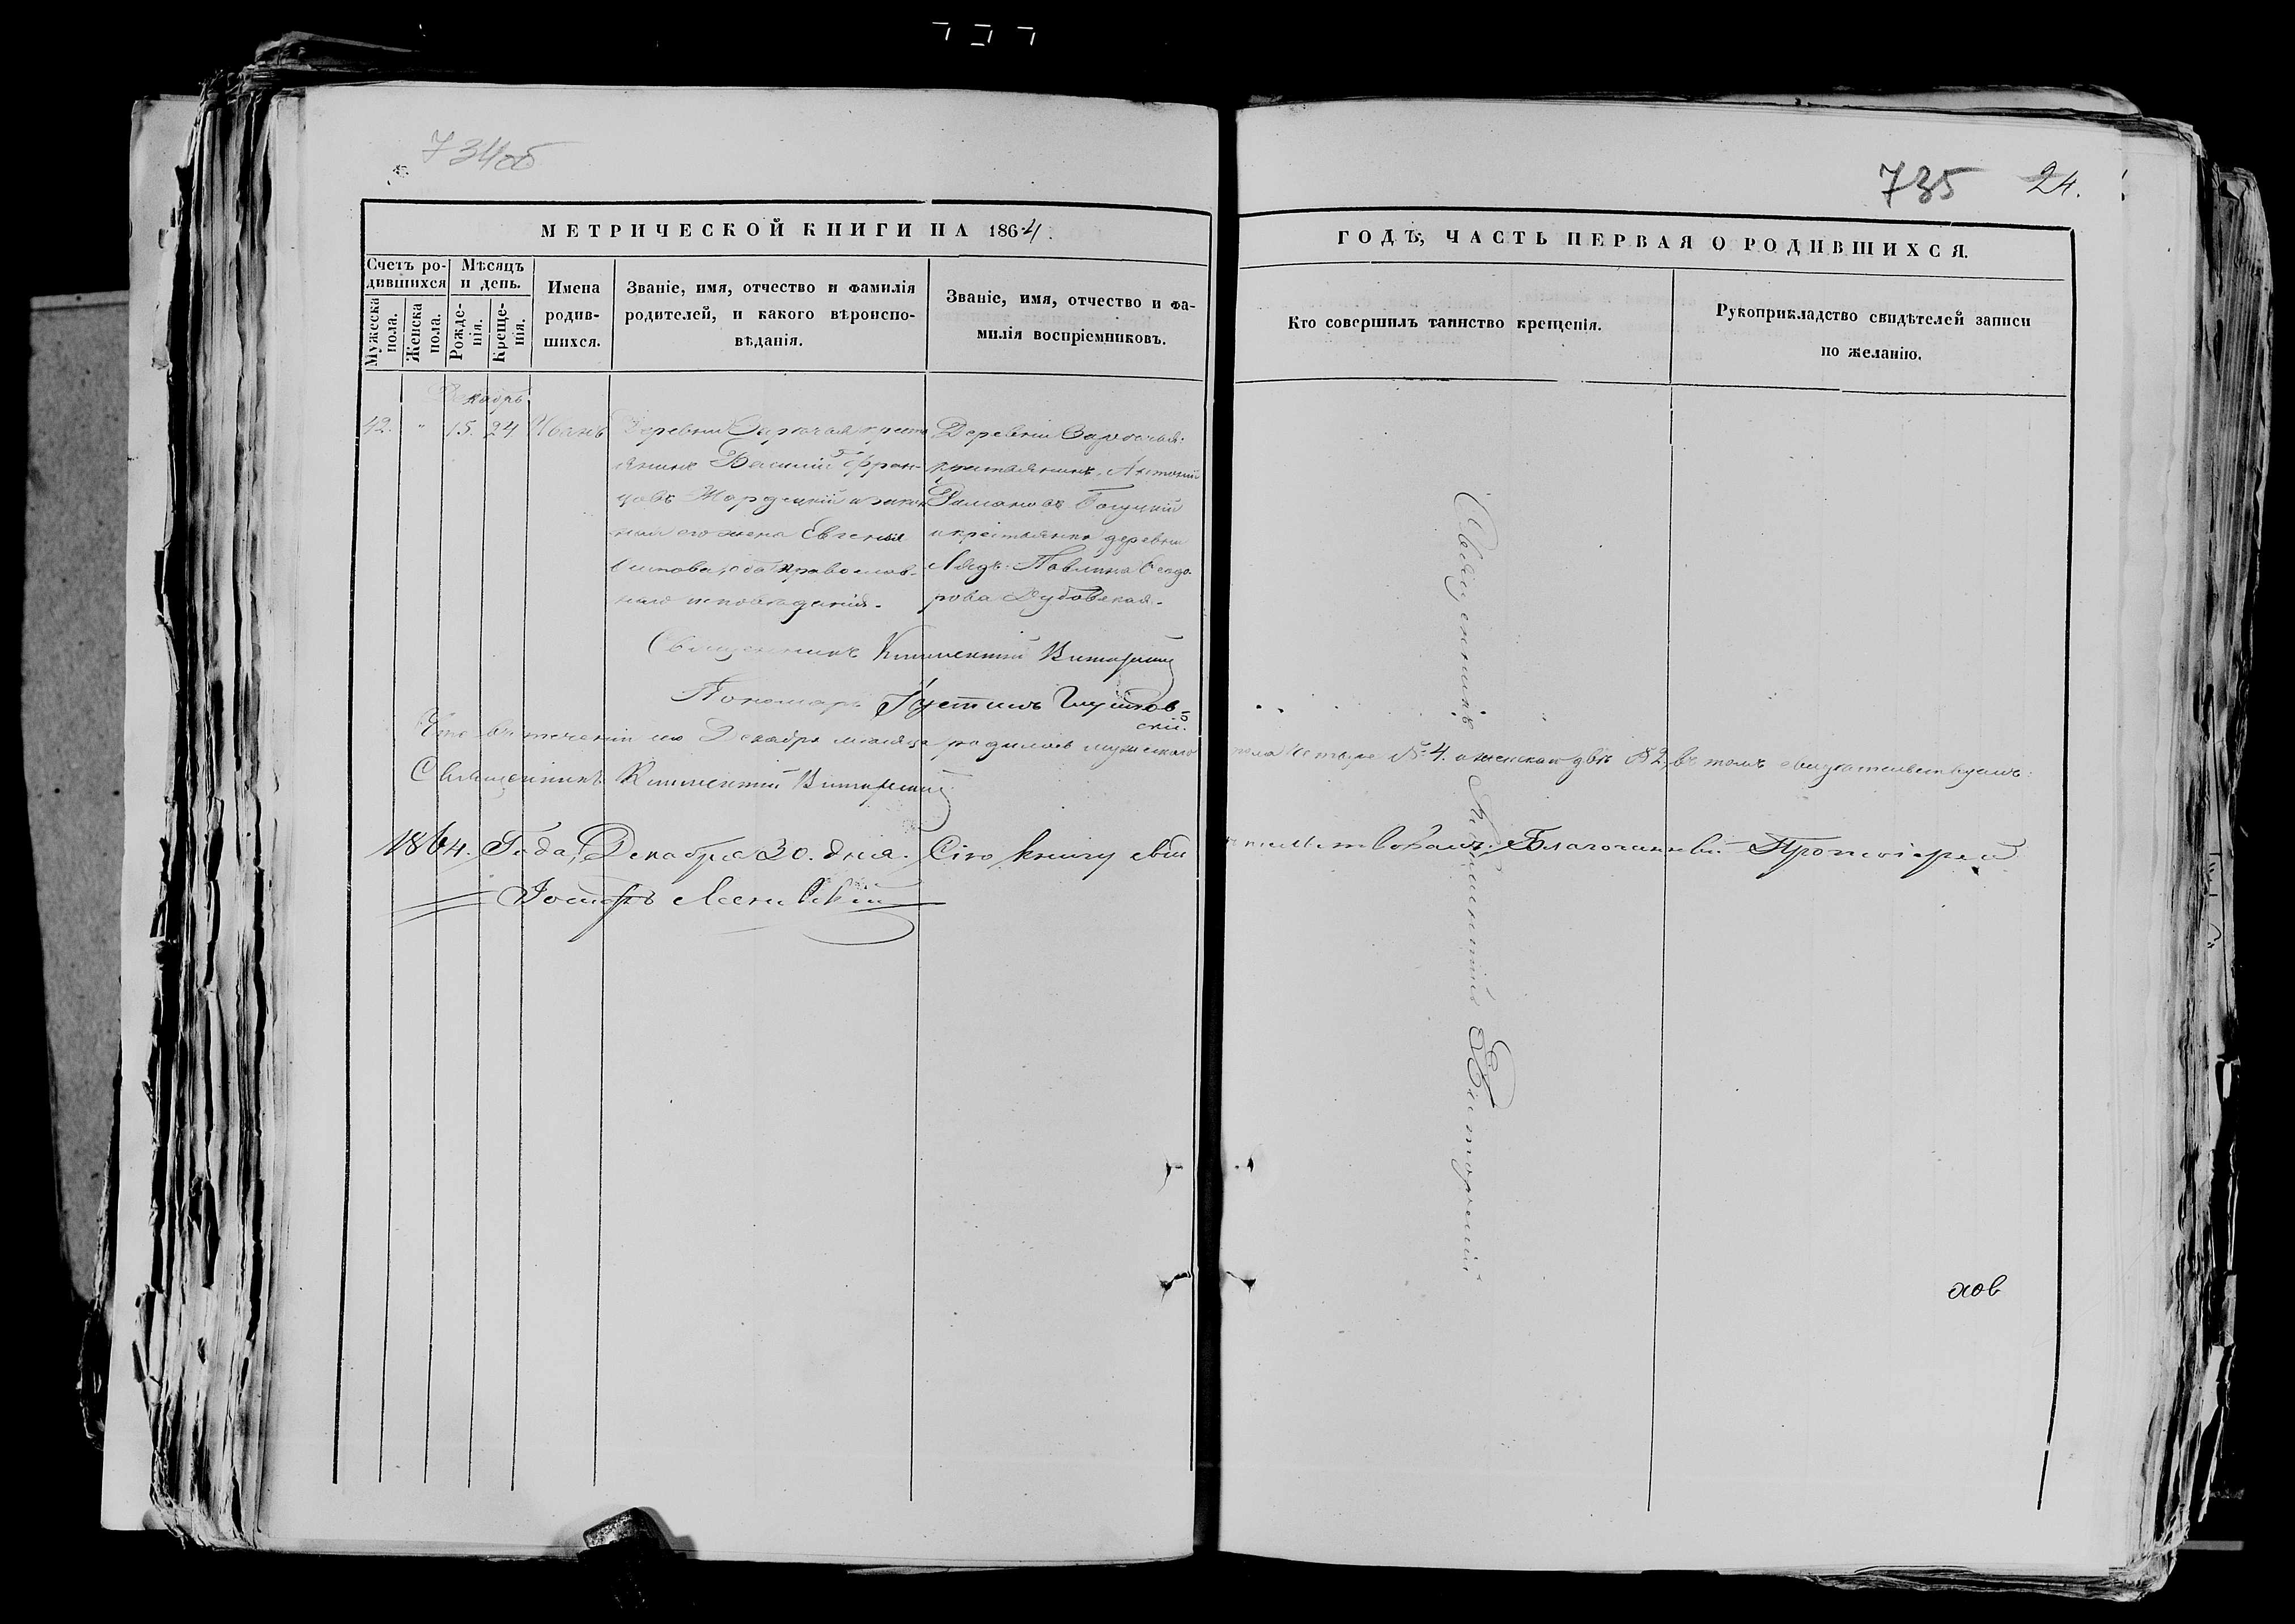 734об
735 24.
МЕТРИЧЕСКОЙ КНИГИ НА 1864.
ГОДЪ, ЧАСТЬ ПЕРВАЯ О РОДИВШИХСЯ.
Счетъ родившихся
Мужеска пола.
Женска пола.
Мѣсяцъ и день.
Рожденія.
Крещенія.
Имена родившихся.
Званіе, имя, отчество и фамилія
родителей, и какого вѣроиспо-
вѣданія.
Званіе, имя, отчество и фа-
милія воспріемниковъ.
Кто совершилъ таинство крещенія.
Рукоприкладство свидѣтелей записи
по желанію.
Декабрь
42. " 15. 24 Иванъ
Деревни крестъ
янинъ Василій Фран-
цовъ и закон
ная его жена Евгенія
оба православ-
наго исповѣданія.
Деревни
крестьянинъ Антоній
и крестьянка деревни
Лядъ Павлина Ѳеодо-
рова Дубовская.
Священникъ Климентій
Пономарь Іустинъ
Что въ теченіи Декабря мѣсяца родилось мужескаго пола четыре № 4. а женскаго двѣ № 2, въ томъ свидѣтельствуемъ:
Священникъ Климентій
1864. Года, Декабря 30. дня. Сію книгу свидѣтельствовалъ Благочинный Протоіерей
Іосифъ
Священникъ Климентій
хов